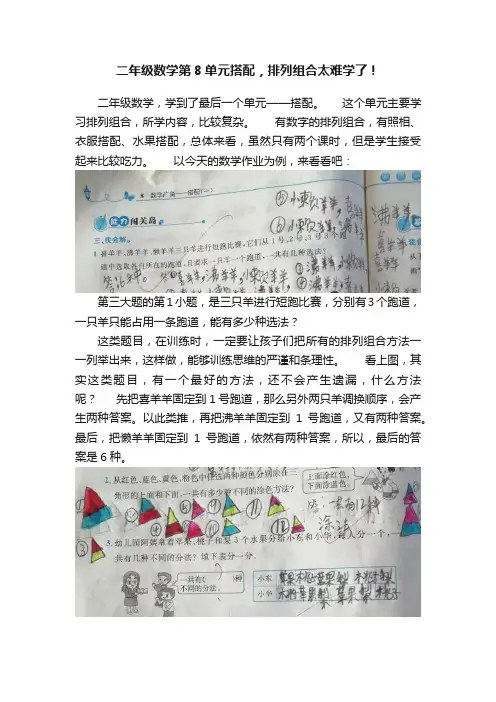 二年级数学第8单元搭配，排列组合太难学了！
二年级数学，学到了最后一个单元——搭配。 这个单元主要学
习排列组合，所学内容，比较复杂。 有数字的排列组合，有照相、
衣服搭配、水果搭配，总体来看，虽然只有两个课时，但是学生接受
起来比较吃力。 以今天的数学作业为例，来看看吧：
8 数学广角——搭配(一)
能力闯关岛
三、我会解。
1.喜羊羊、沸羊羊、懒羊羊三只羊进行短跑比赛，它们从1号、2号、3号3个跑
道中选取各自所在的跑道，且要求一只羊一个跑道，一共有几种选法？
第三大题的第1小题，是三只羊进行短跑比赛，分别有3个跑道，
一只羊只能占用一条跑道，能有多少种选法？
这类题目，在训练时，一定要让孩子们把所有的排列组合方法一
一列举出来，这样做，能够训练思维的严谨和条理性。 看上图，其
实这类题目，有一个最好的方法，还不会产生遗漏，什么方法
呢？ 先把喜羊羊固定到1号跑道，那么另外两只羊调换顺序，会产
生两种答案。以此类推，再把沸羊羊固定到1号跑道，又有两种答案。
最后，把懒羊羊固定到1号跑道，依然有两种答案，所以，最后的答
案是6种。
2.从红色、蓝色、黄色、粉色中任选两种颜色分别涂在三
角形的上面和下面，一共有多少种不同的涂色方法？
上面涂红色，
下面涂蓝色。
答：一共有12种
涂法
3.幼儿园阿姨拿着苹果、桃子和梨3个水果分给小东和小华，每人分一个，一
共有几种不同的分法？填下表分一分。
一共有( )种
不同的分法。
小东 苹果 桃子 苹果 梨 桃子 梨
小华 桃子 苹果 梨 苹果 梨 桃子